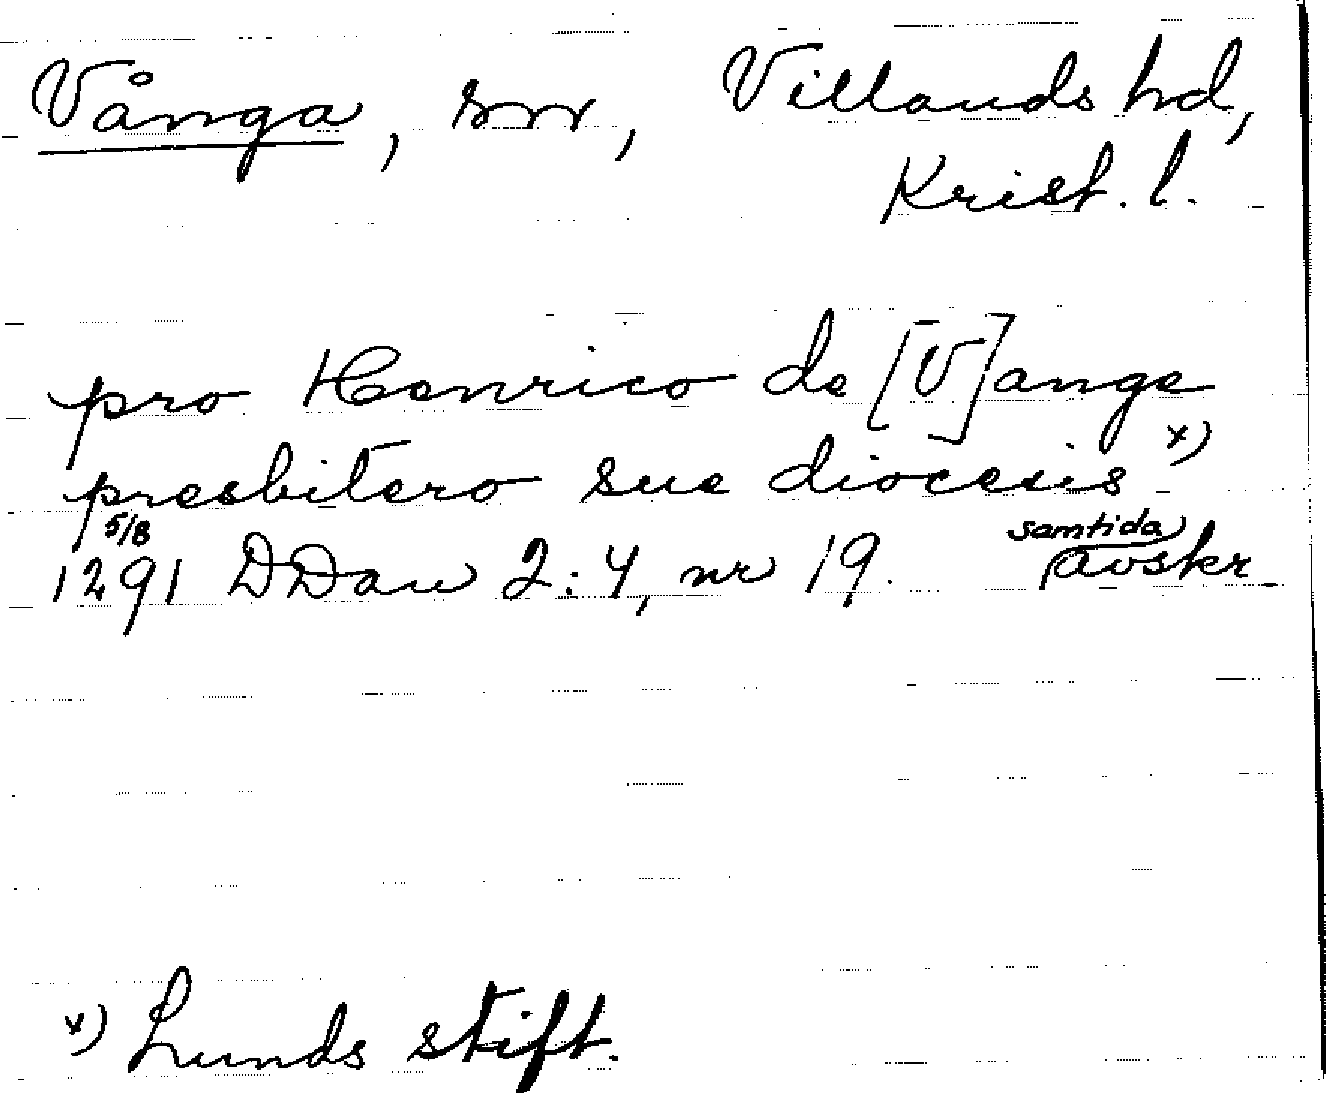 Vånga, sn, Villands hd,
Krist. l.
pro Henrico de [V]ange
presbitero sue diocesis x)
5/8 samtida
1291 DDan 2:4, nr 19. avskr.
x) Lunds stift.